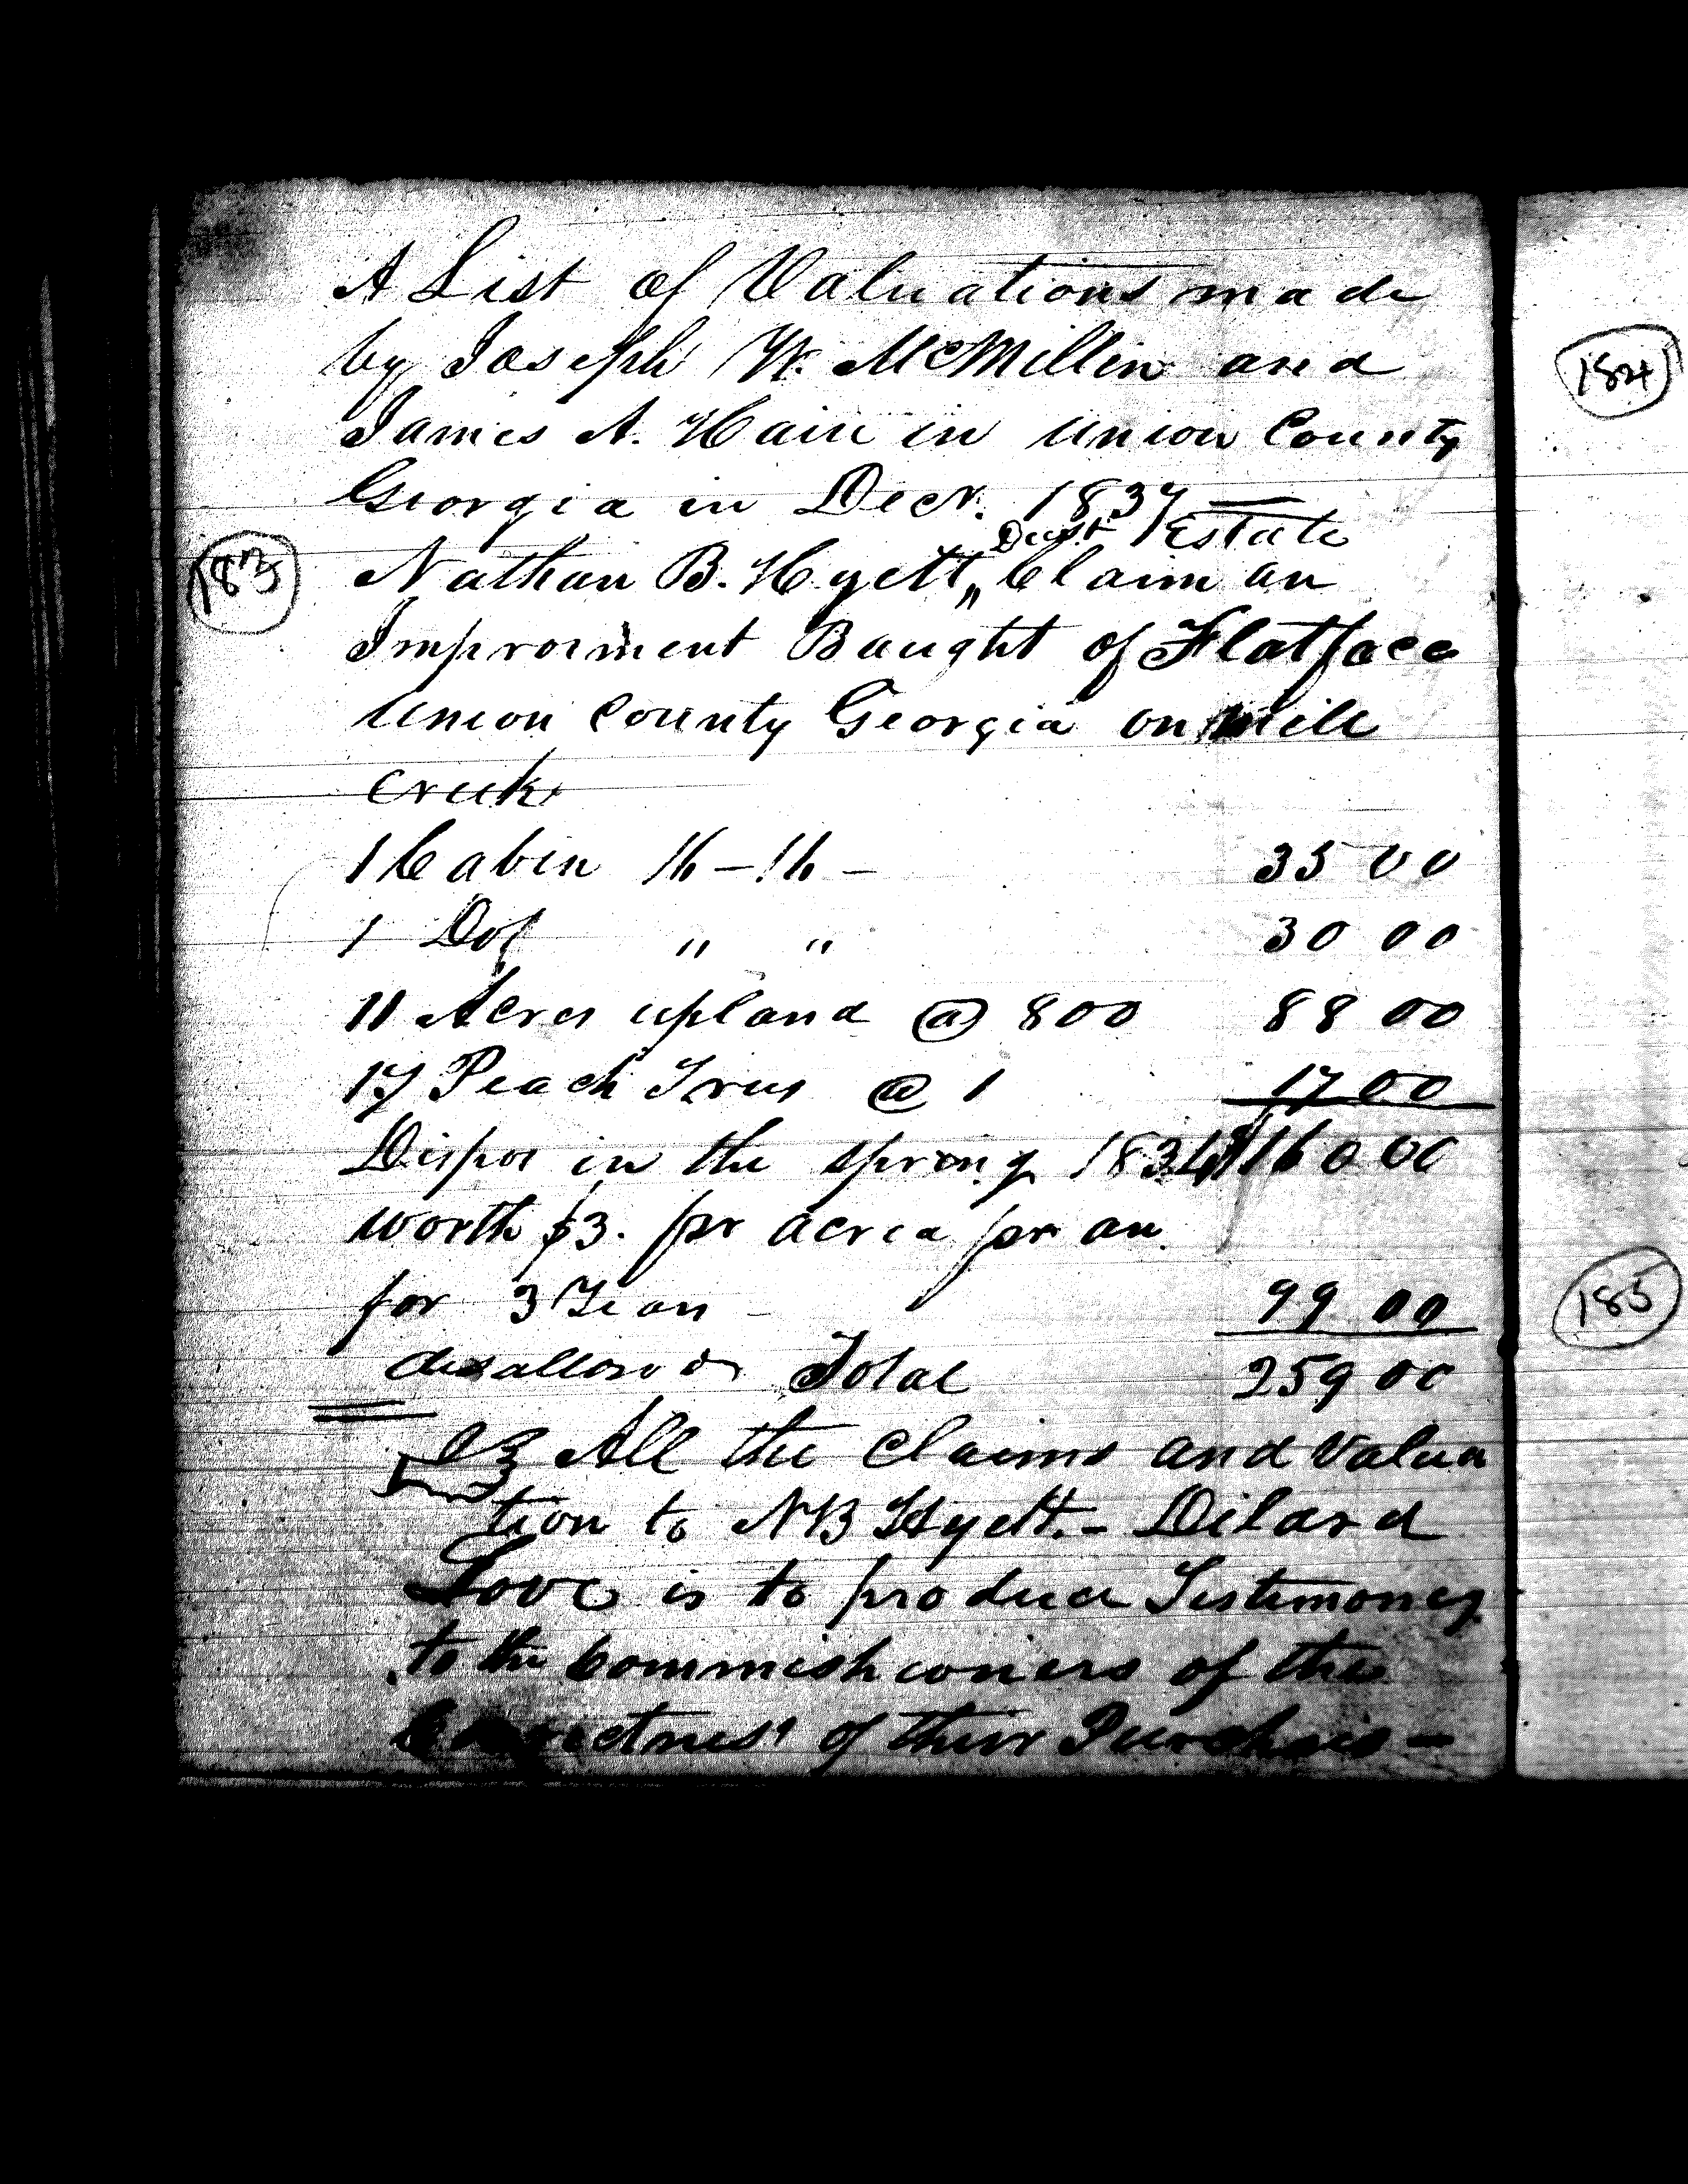 A List of Valuations made
by Joseph W. McMillin and
James A. Hair in Union County
Georgia in Decr. 1837
Decst Estate
183 Nathan B. Hyett,, Claim an
Improvment Baught of Flatface
Union County Georgia on mill
creek
1 Cabin 16 - 16 - 35 00
1 Do " " 30 00
11 Acres upland @ 800 88 00
17 Peach Trees @ 1 17 00
Dispos in the spring 1834 $160 00
worth $3. pr acrea pr an.
for 3 Years - 99 00
disallowd Total 259 00
All the Claims and Valua
tion to NB Hyett. - Dilard
Love is to produce Testimoney
to the Commishioners of the
Correctness of their Purchases -
184
185